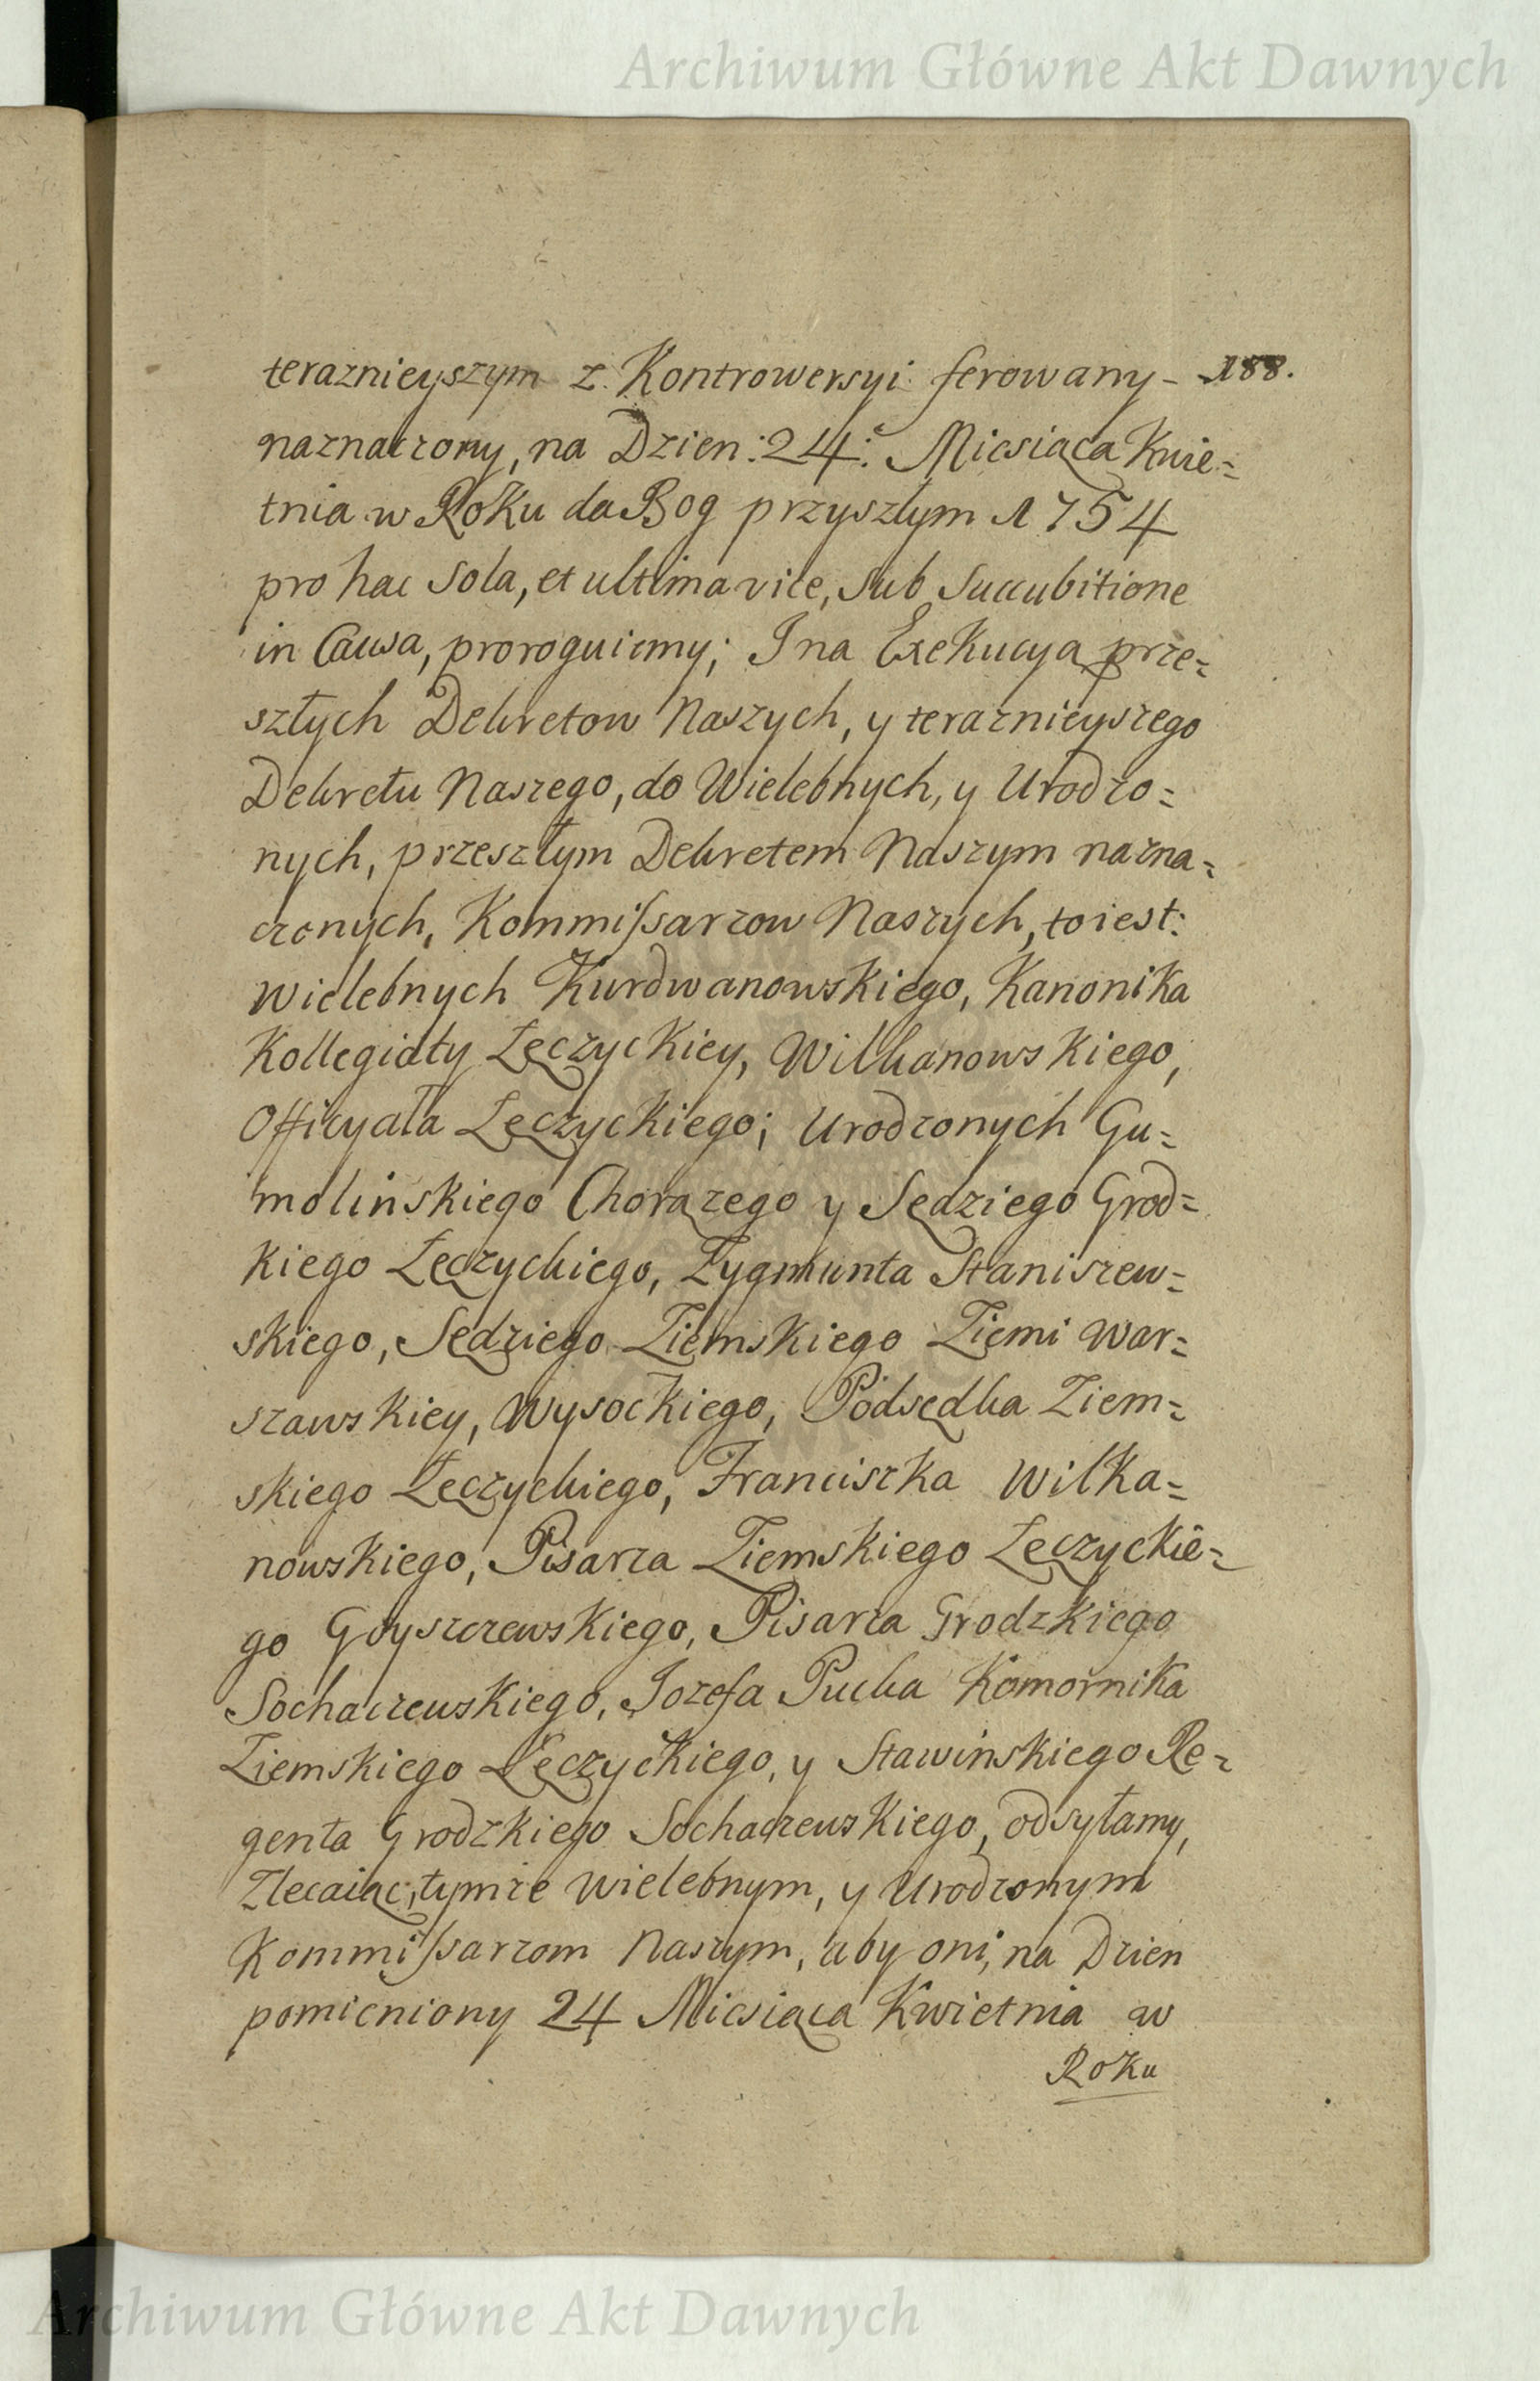 Archiwum Główne Akt Dawnych
teraznieyszym z Kontrowersyi ferowany - 188.
naznaczony, na Dzien : 24 : Miesiąca Kwie=
tnia w Roku da Bog przyszłym 1754
pro hac Sola, et ultima vice, Sub Succubitione
in Causa, proroguiemy; I na Exekucyą prze=
szłych Dekretow Naszych, y teraznieyszego
Dekretu Naszego, do Wielebnych, y Urodzo=
nych, przeszłym Dekretem Naszym nazna=
czonych, Kommissarzow Naszych, to iest:
Wielebnych Kurdwanowskiego, Kanonika
Kollegiaty Łęczyckiey, Wilkanowskiego,
Officyała Łęczyckiego; Urodzonych Gu=
molińskiego Chorązego y Sędziego Grod=
kiego Łęczyckiego, Zygmunta Staniszew=
skiego, Sędziego Ziemskiego Ziemi War=
szawskiey, Wysockiego, Podsędka Ziem=
skiego Łęczyckiego, Franciszka Wilka=
nowskiego, Pisarza Ziemskiego Łęczyckie=
go Goyszczewskiego, Pisarza Grodzkiego
Sochaczewskiego, Jozefa Pucka Komornika
Ziemskiego Łęczyckiego, y Stawinskiego Re=
genta Grodzkiego Sochaczewskiego, odsyłamy,
Zlecaiąc, tymze Wielebnym, y Urodzonym
Kommissarzom Naszym, aby oni, na Dzien
pomieniony 24 Miesiąca Kwietnia w
Roku
Archiwum Główne Akt Dawnych